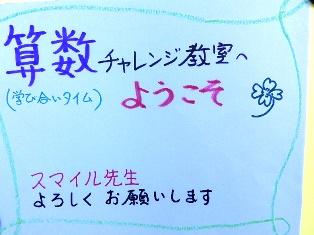 算数チャレンジ教室へ
(学び合いタイム)
ようこそ
スマイル先生
よろしくお願いします